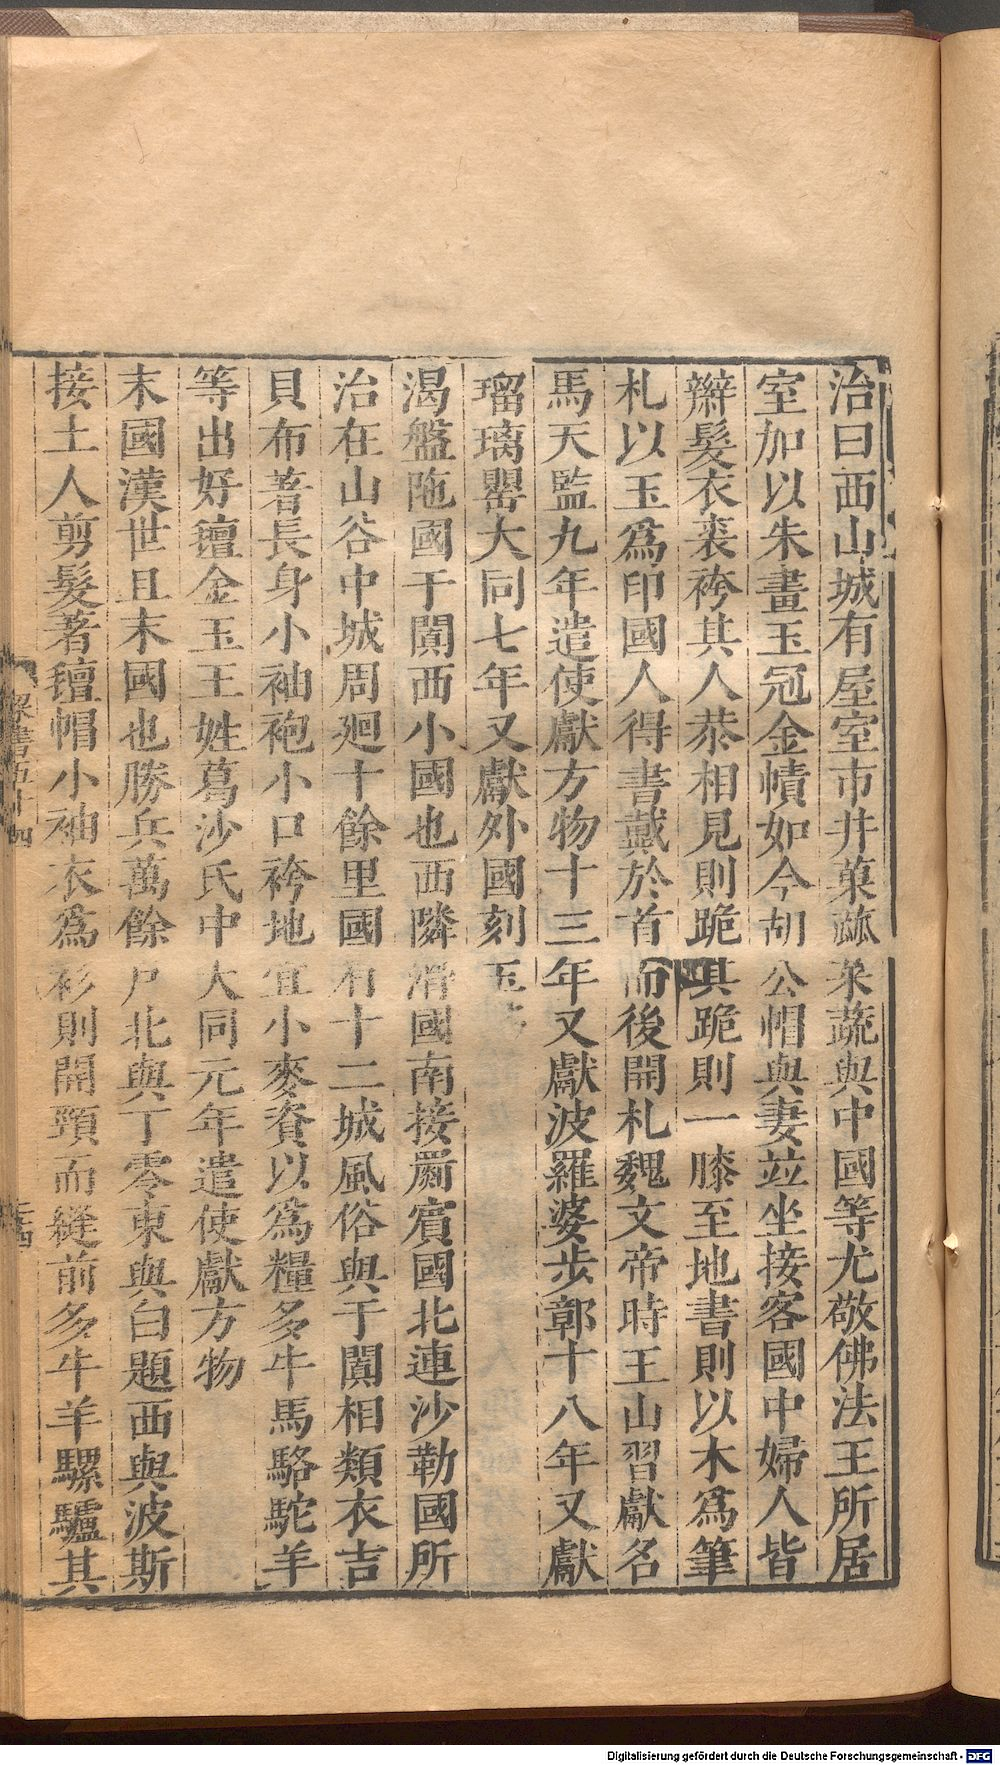 治曰西山城有屋室市井菓蓏菜蔬與中國等尤敬佛法王所居
室加以朱畫王冠金幘如今胡公帽與妻並坐接客國中婦人皆
辮髮衣裘袴其人恭相見則跪其跪則一膝至地書則以木爲筆
札以玉爲印國人得書戴於首而後開札魏文帝時王山習獻名
馬天監九年遣使獻方物十三年又獻波羅婆步鄣十八年又獻
瑠璃罌大同七年又獻外國刻玉
渴盤陁國于闐西小國也西隣滑國南接罽賓國北連沙勒國所
治在山谷中城周廻十餘里國有十二城風俗與于闐相類衣吉
貝布著長身小袖袍小口袴地宜小麥資以爲糧多牛馬駱駝羊
等出好氊金玉王姓葛沙氏中大同元年遣使獻方物
末國漢世且末國也勝兵萬餘戶北與丁零東與白題西與波斯
接土人剪髮著氊帽小袖衣爲衫則開頸而縫前多牛羊騾驢其
梁書五十四
Digitalisierung gefördert durch die Deutsche Forschungsgemeinschaft - DFG